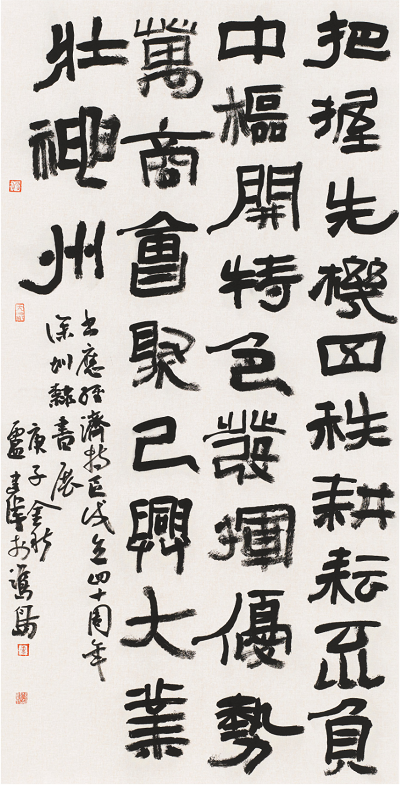 把握先機四秩耕耘不負
中樞開特色發揮優勢
萬商會聚已興大業
壯神州
書應經濟特区成立四十周年
深圳隸書展
庚子金秋
盧於